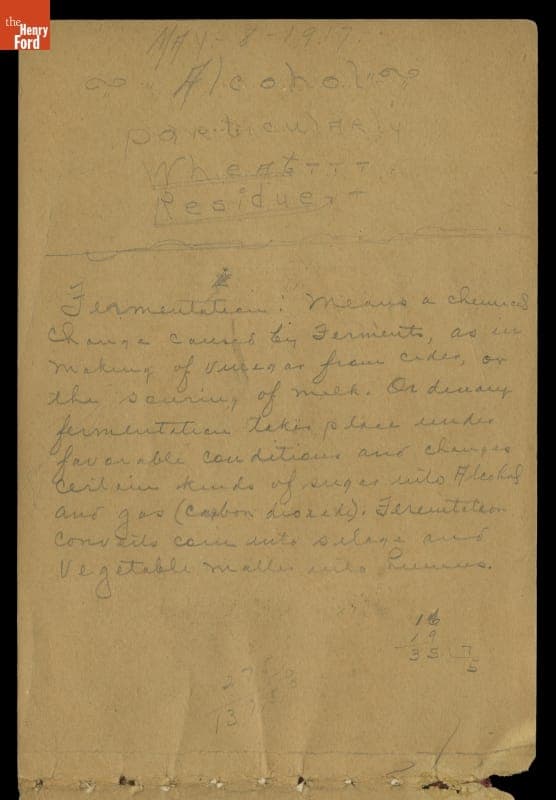 the
Henry
Ford
MAY - 8 - 1917
Alcohol
particularly
Wheat
Residue
Fermentation: Means a chemical
change caused by Ferments, as in
making of vinegar from cider, or
the souring of milk. Ordinary
fermentation takes place under
favorable conditions and changes
certain kinds of sugar into Alcohol
and gas (carbon dioxede). Fermentation
converts corn into silage and
vegetable matter into humus.
16
19
35 7
5
27
137